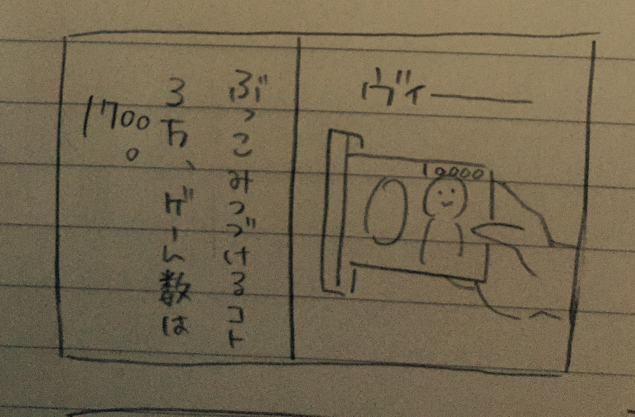 ヴィー
10000
ぶっこみつづけるコト
3万、ゲーム数は
1700。